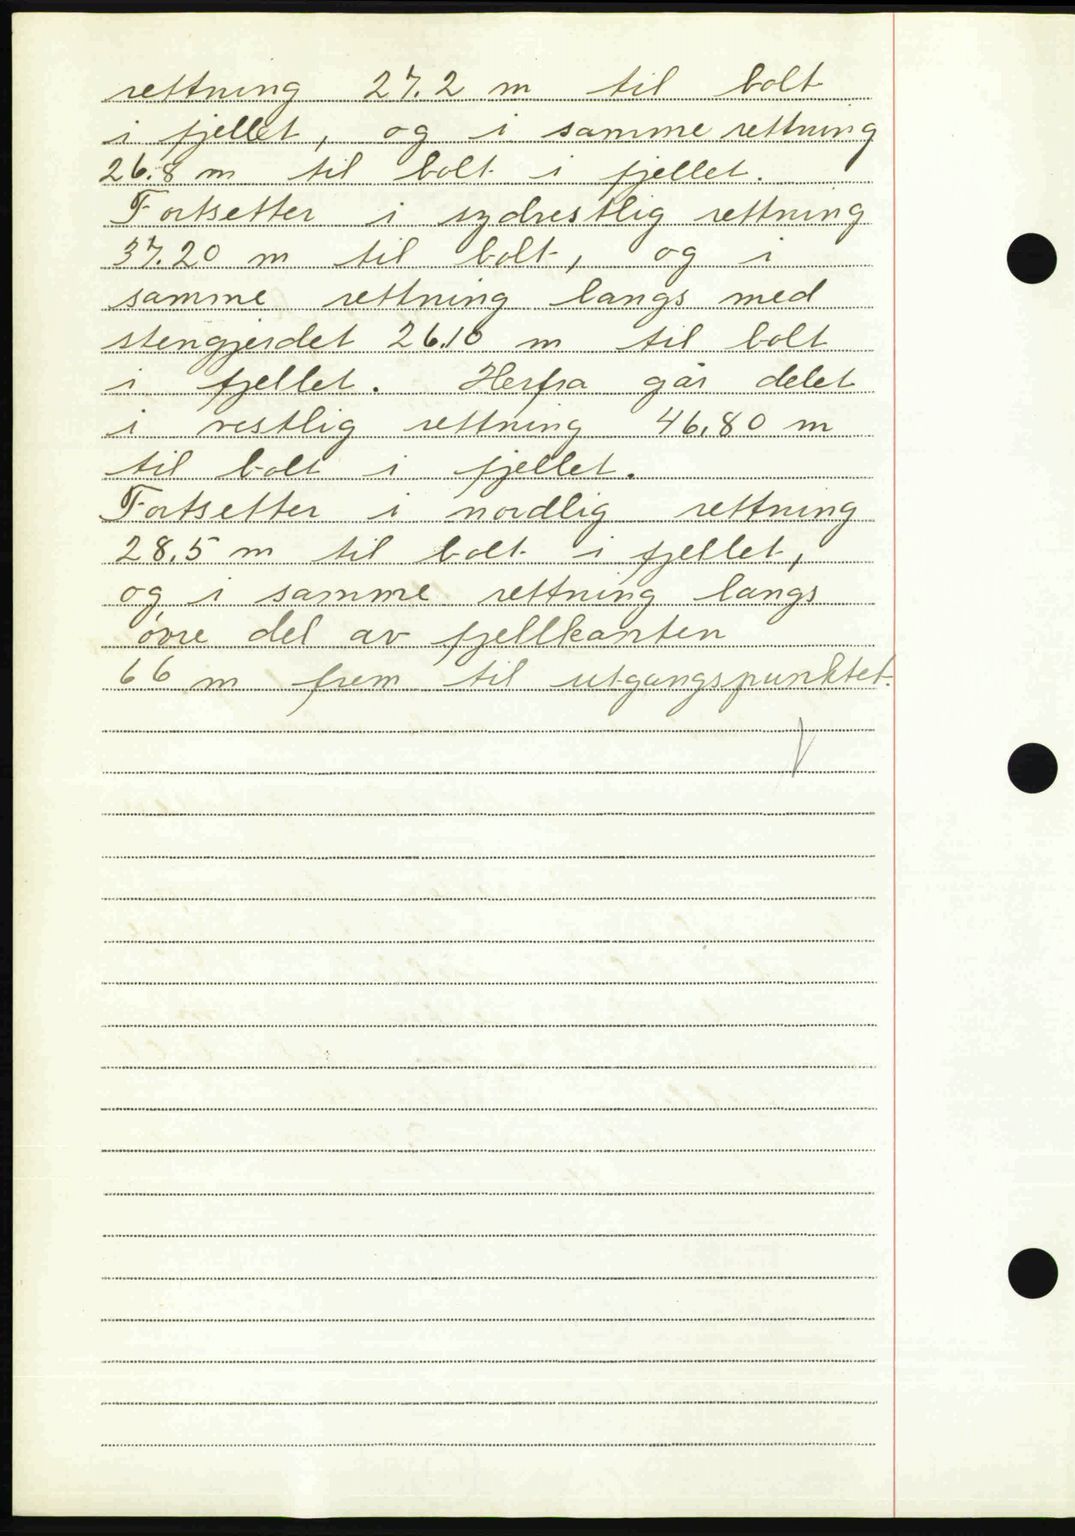 rettning 27.2 m til bolt
i fjellet, og i samme rettning
26.8 m til bolt i fjellet.
Fortsetter i sydvestlig rettning
37.20 m til bolt, og i
samme rettning langs med
stengjerdet 26.10 m til bolt
i fjellet. Herfra går delet
i vestlig rettning 46.80 m
til bolt i fjellet.
Fortsetter i nordlig rettning
28.5 m til bolt i fjellet,
og i samme rettning langs
øvre del av fjellkanten
66 m frem til utgangspunktet.